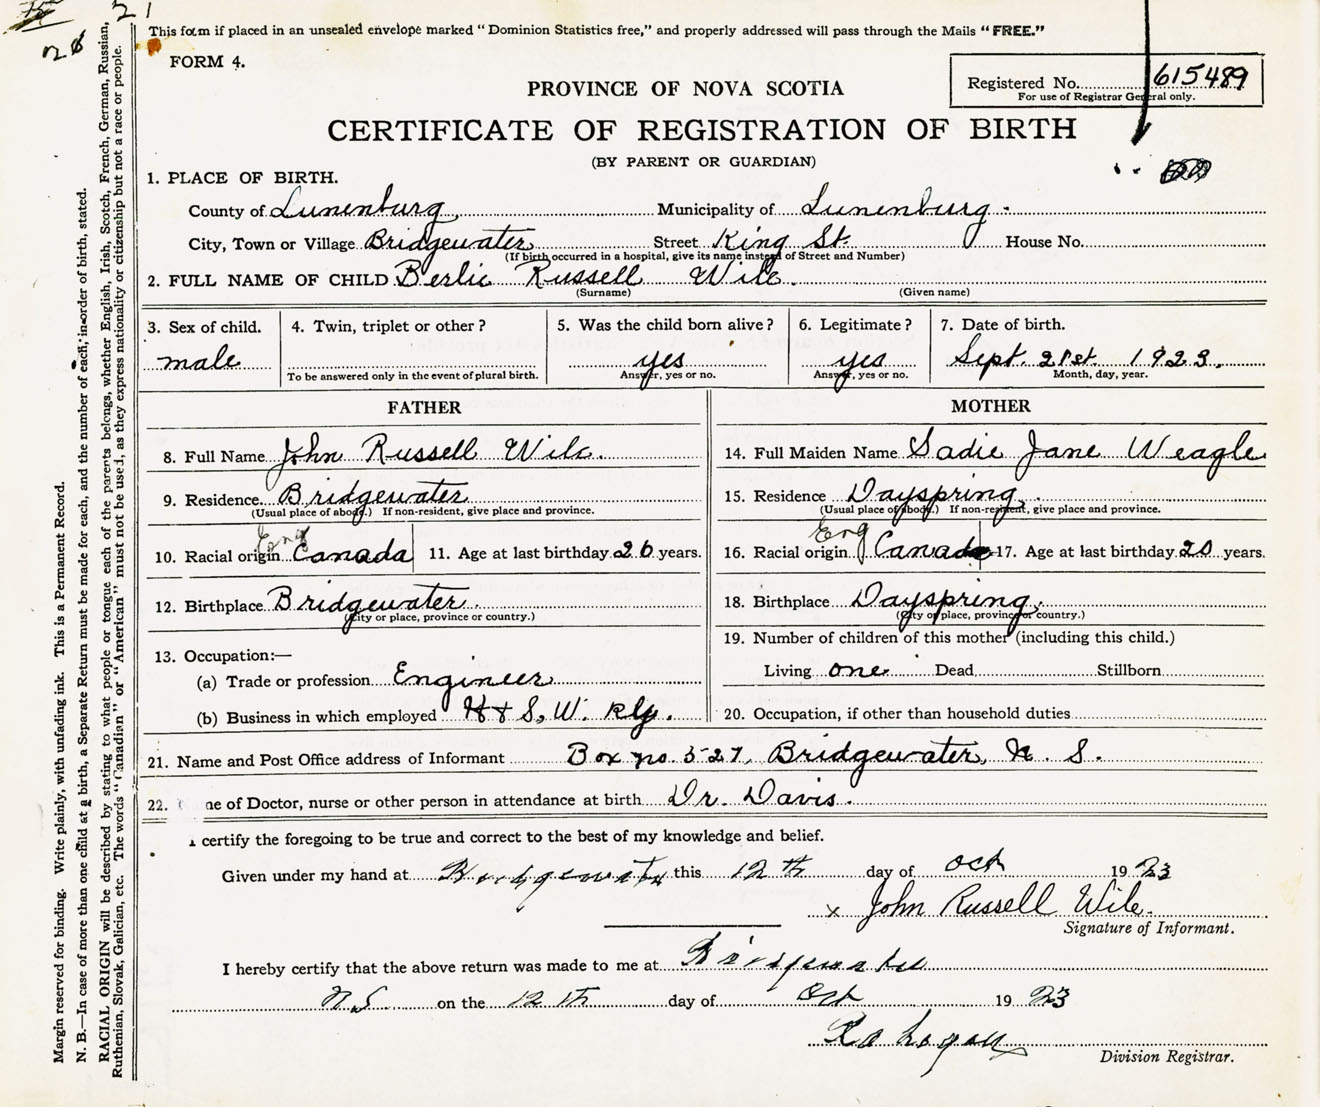 21
28
This form if placed in an unsealed envelope marked "Dominion Statistics free," and properly addressed will pass through the Mails "FREE."
FORM 4.
Registered No. 615489
For use of Registrar General only.
PROVINCE OF NOVA SCOTIA
CERTIFICATE OF REGISTRATION OF BIRTH
(BY PARENT OR GUARDIAN)
1. PLACE OF BIRTH.
County of Lunenburg Municipality of Lunenburg
City, Town or Village Bridgewater Street King St. House No.
(If birth occurred in a hospital, give its name instead of Street and Number)
2. FULL NAME OF CHILD Berlie Russell Wile.
(Surname) (Given name)
3. Sex of child. 4. Twin, triplet or other? 5. Was the child born alive? 6. Legitimate? 7. Date of birth.
male yes yes Sept. 21st. 1923.
To be answered only in the event of plural birth. Answer, yes or no. Answer, yes or no. Month, day, year.
FATHER MOTHER
8. Full Name John Russell Wile. 14. Full Maiden Name Sadie Jane Weagle
9. Residence Bridgewater 15. Residence Dayspring.
(Usual place of abode.) If non-resident, give place and province. (Usual place of abode.) If non-resident, give place and province.
Eng Eng
10. Racial origin Canada 11. Age at last birthday 26 years. 16. Racial origin Canada 17. Age at last birthday 20 years.
12. Birthplace Bridgewater. 18. Birthplace Dayspring.
(City or place, province or country.) (City or place, province or country.)
13. Occupation:— 19. Number of children of this mother (including this child.)
(a) Trade or profession Engineer Living one Dead Stillborn
(b) Business in which employed H & S. W. Rly. 20. Occupation, if other than household duties
21. Name and Post Office address of Informant Box no 527, Bridgewater, N. S.
22. ne of Doctor, nurse or other person in attendance at birth Dr. Davis.
I certify the foregoing to be true and correct to the best of my knowledge and belief.
Given under my hand at Bridgewater this 12 th day of Oct 1923
x John Russell Wile.
Signature of Informant.
I hereby certify that the above return was made to me at Bridgewater
N S on the 12 th day of Oct 1923
Logan
Division Registrar.
Margin reserved for binding. Write plainly, with unfading ink. This is a Permanent Record.
N. B.—In case of more than one child at a birth, a Separate Return must be made for each, and the number of each, in order of birth, stated.
RACIAL ORIGIN will be described by stating to what people or tongue each of the parents belongs, whether English, Irish, Scotch, French, German, Russian,
Ruthenian, Slovak, Galician, etc. The words "Canadian" or "American" must not be used, as they express nationality or citizenship but not a race or people.